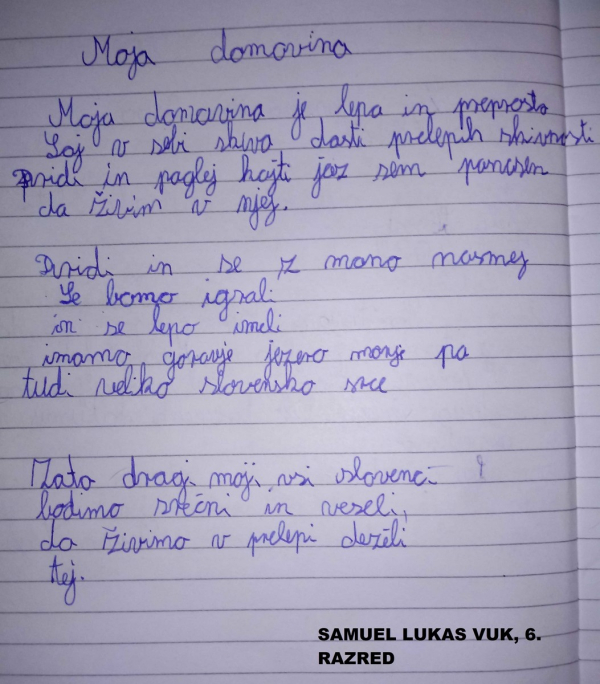 Moja domovina
Moja domovina je lepa in preprosta
Saj v sebi skriva dosti prelepih skrivnosti
Pridi in poglej kajti jaz sem ponosen
da živim v njej.
Pridi in se z mano nasmej
Se bomo igrali
in se lepo imeli
imamo goravje jezero morje pa
tudi veliko slovensko srce
Zato dragi moji vsi slovenci
bodimo srečni in veseli,
da živimo v prelepi deželi
tej.
SAMUEL LUKAS VUK, 6.
RAZRED